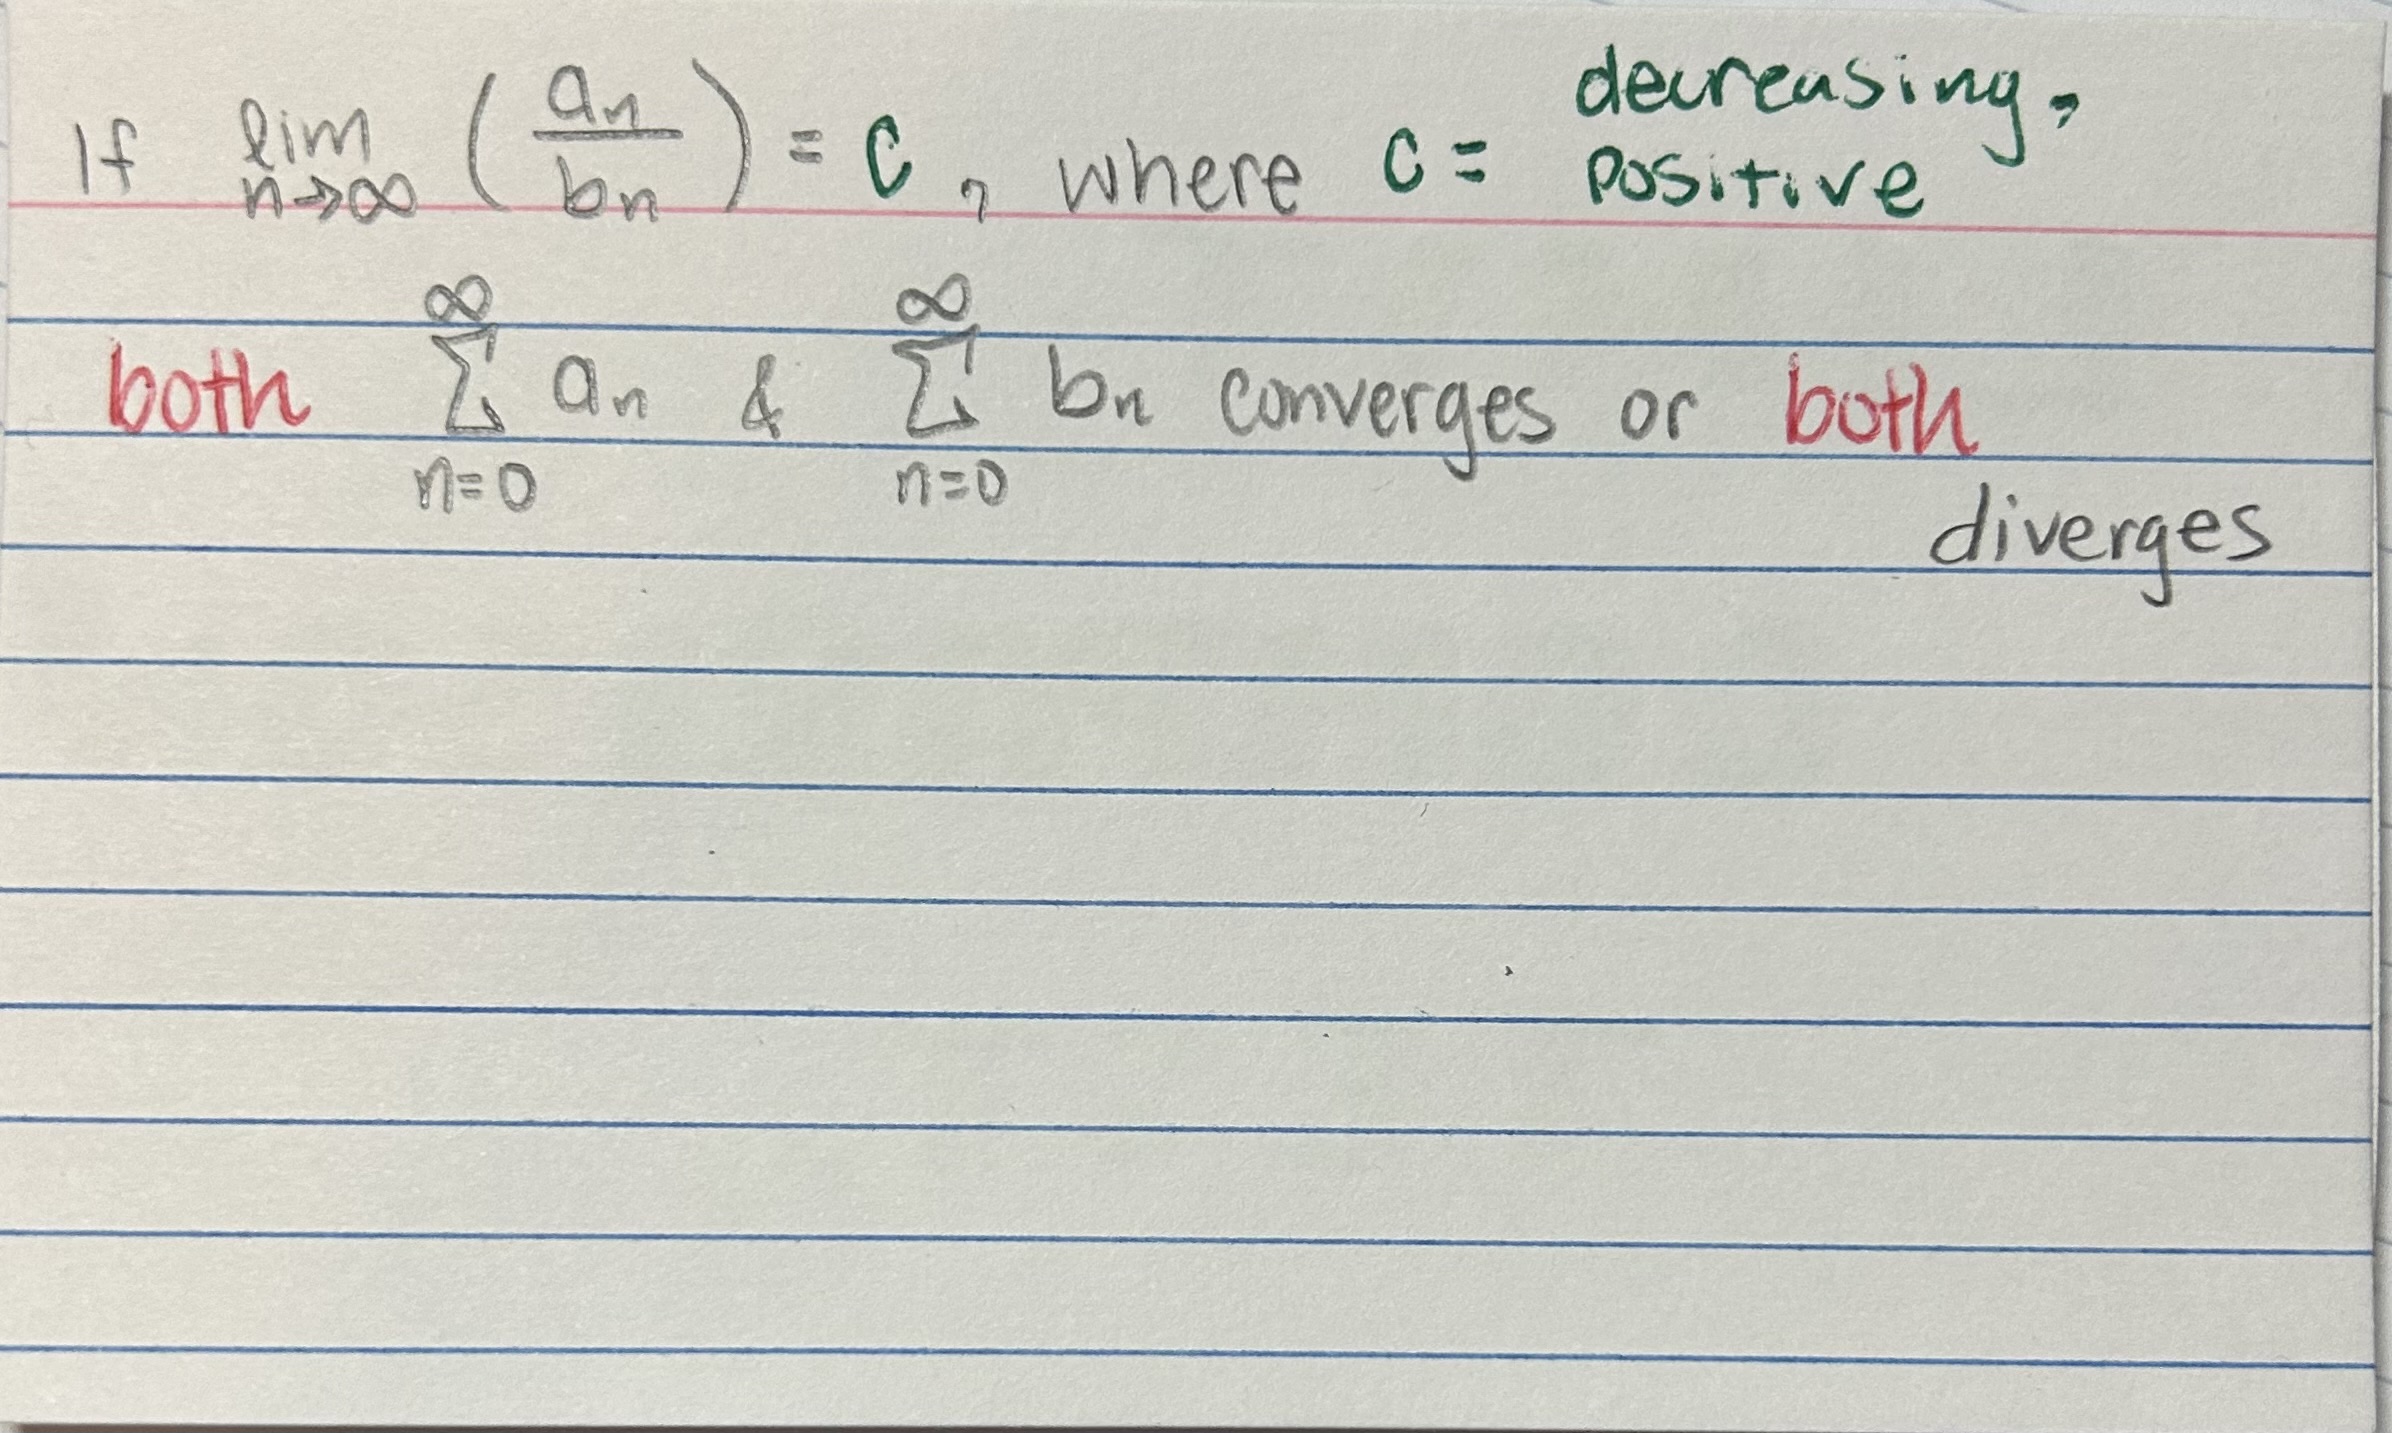 If lim n→∞ (an/bn) = c, where c = decreasing, positive
both ∞ Σ n=0 an & ∞ Σ n=0 bn converges or both
diverges